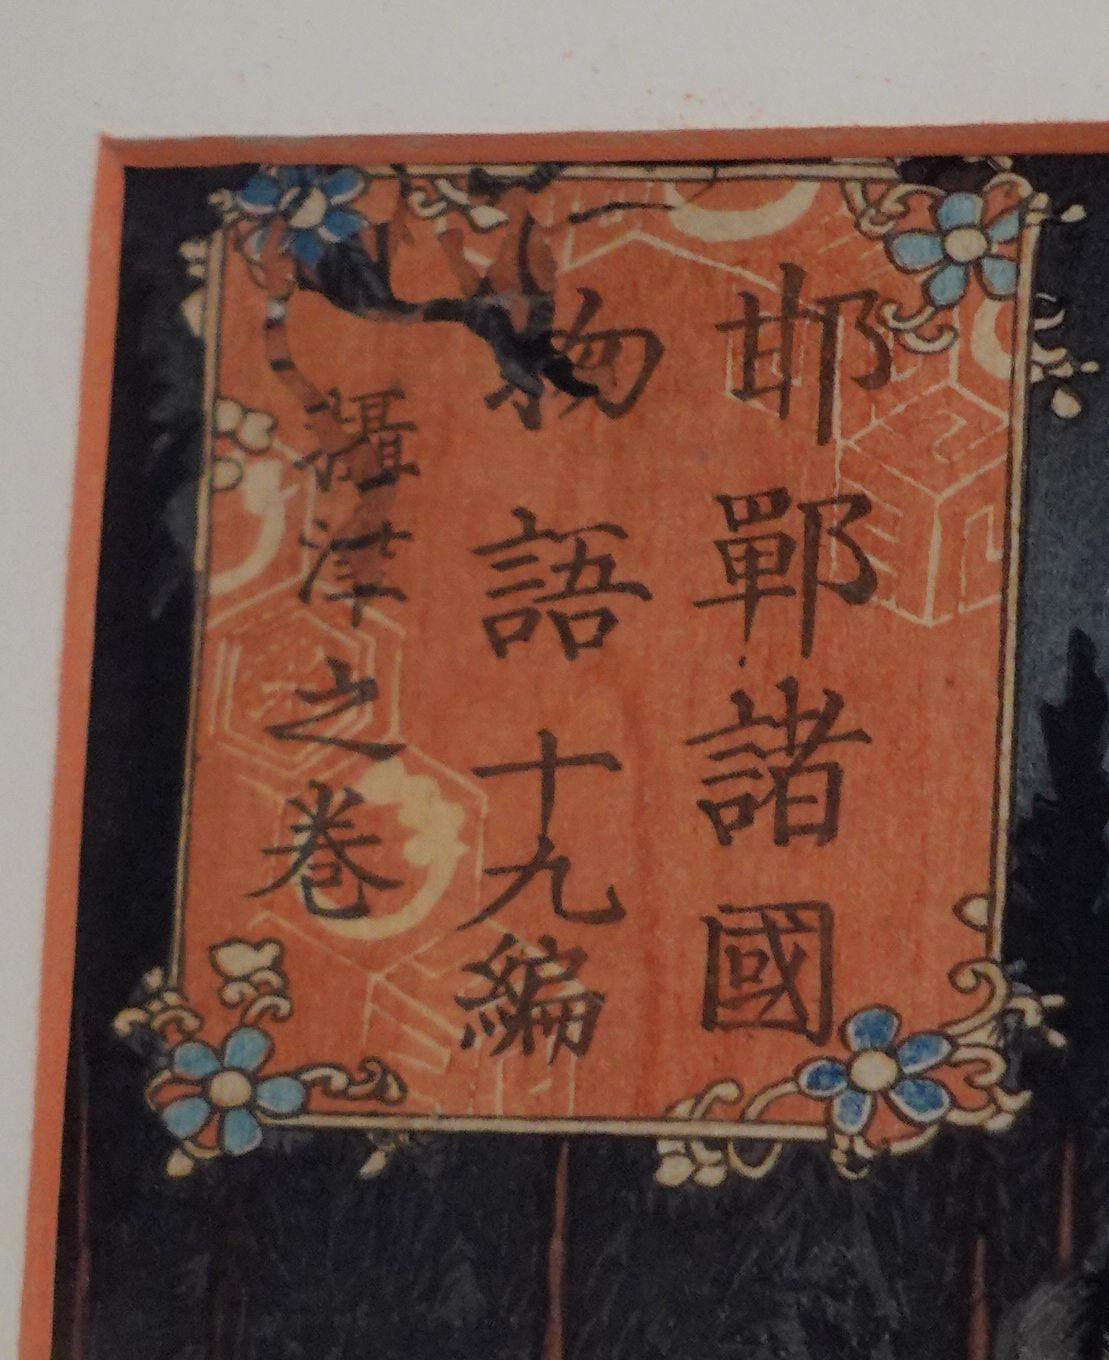 邯鄲諸國
物語十九編
攝津之卷